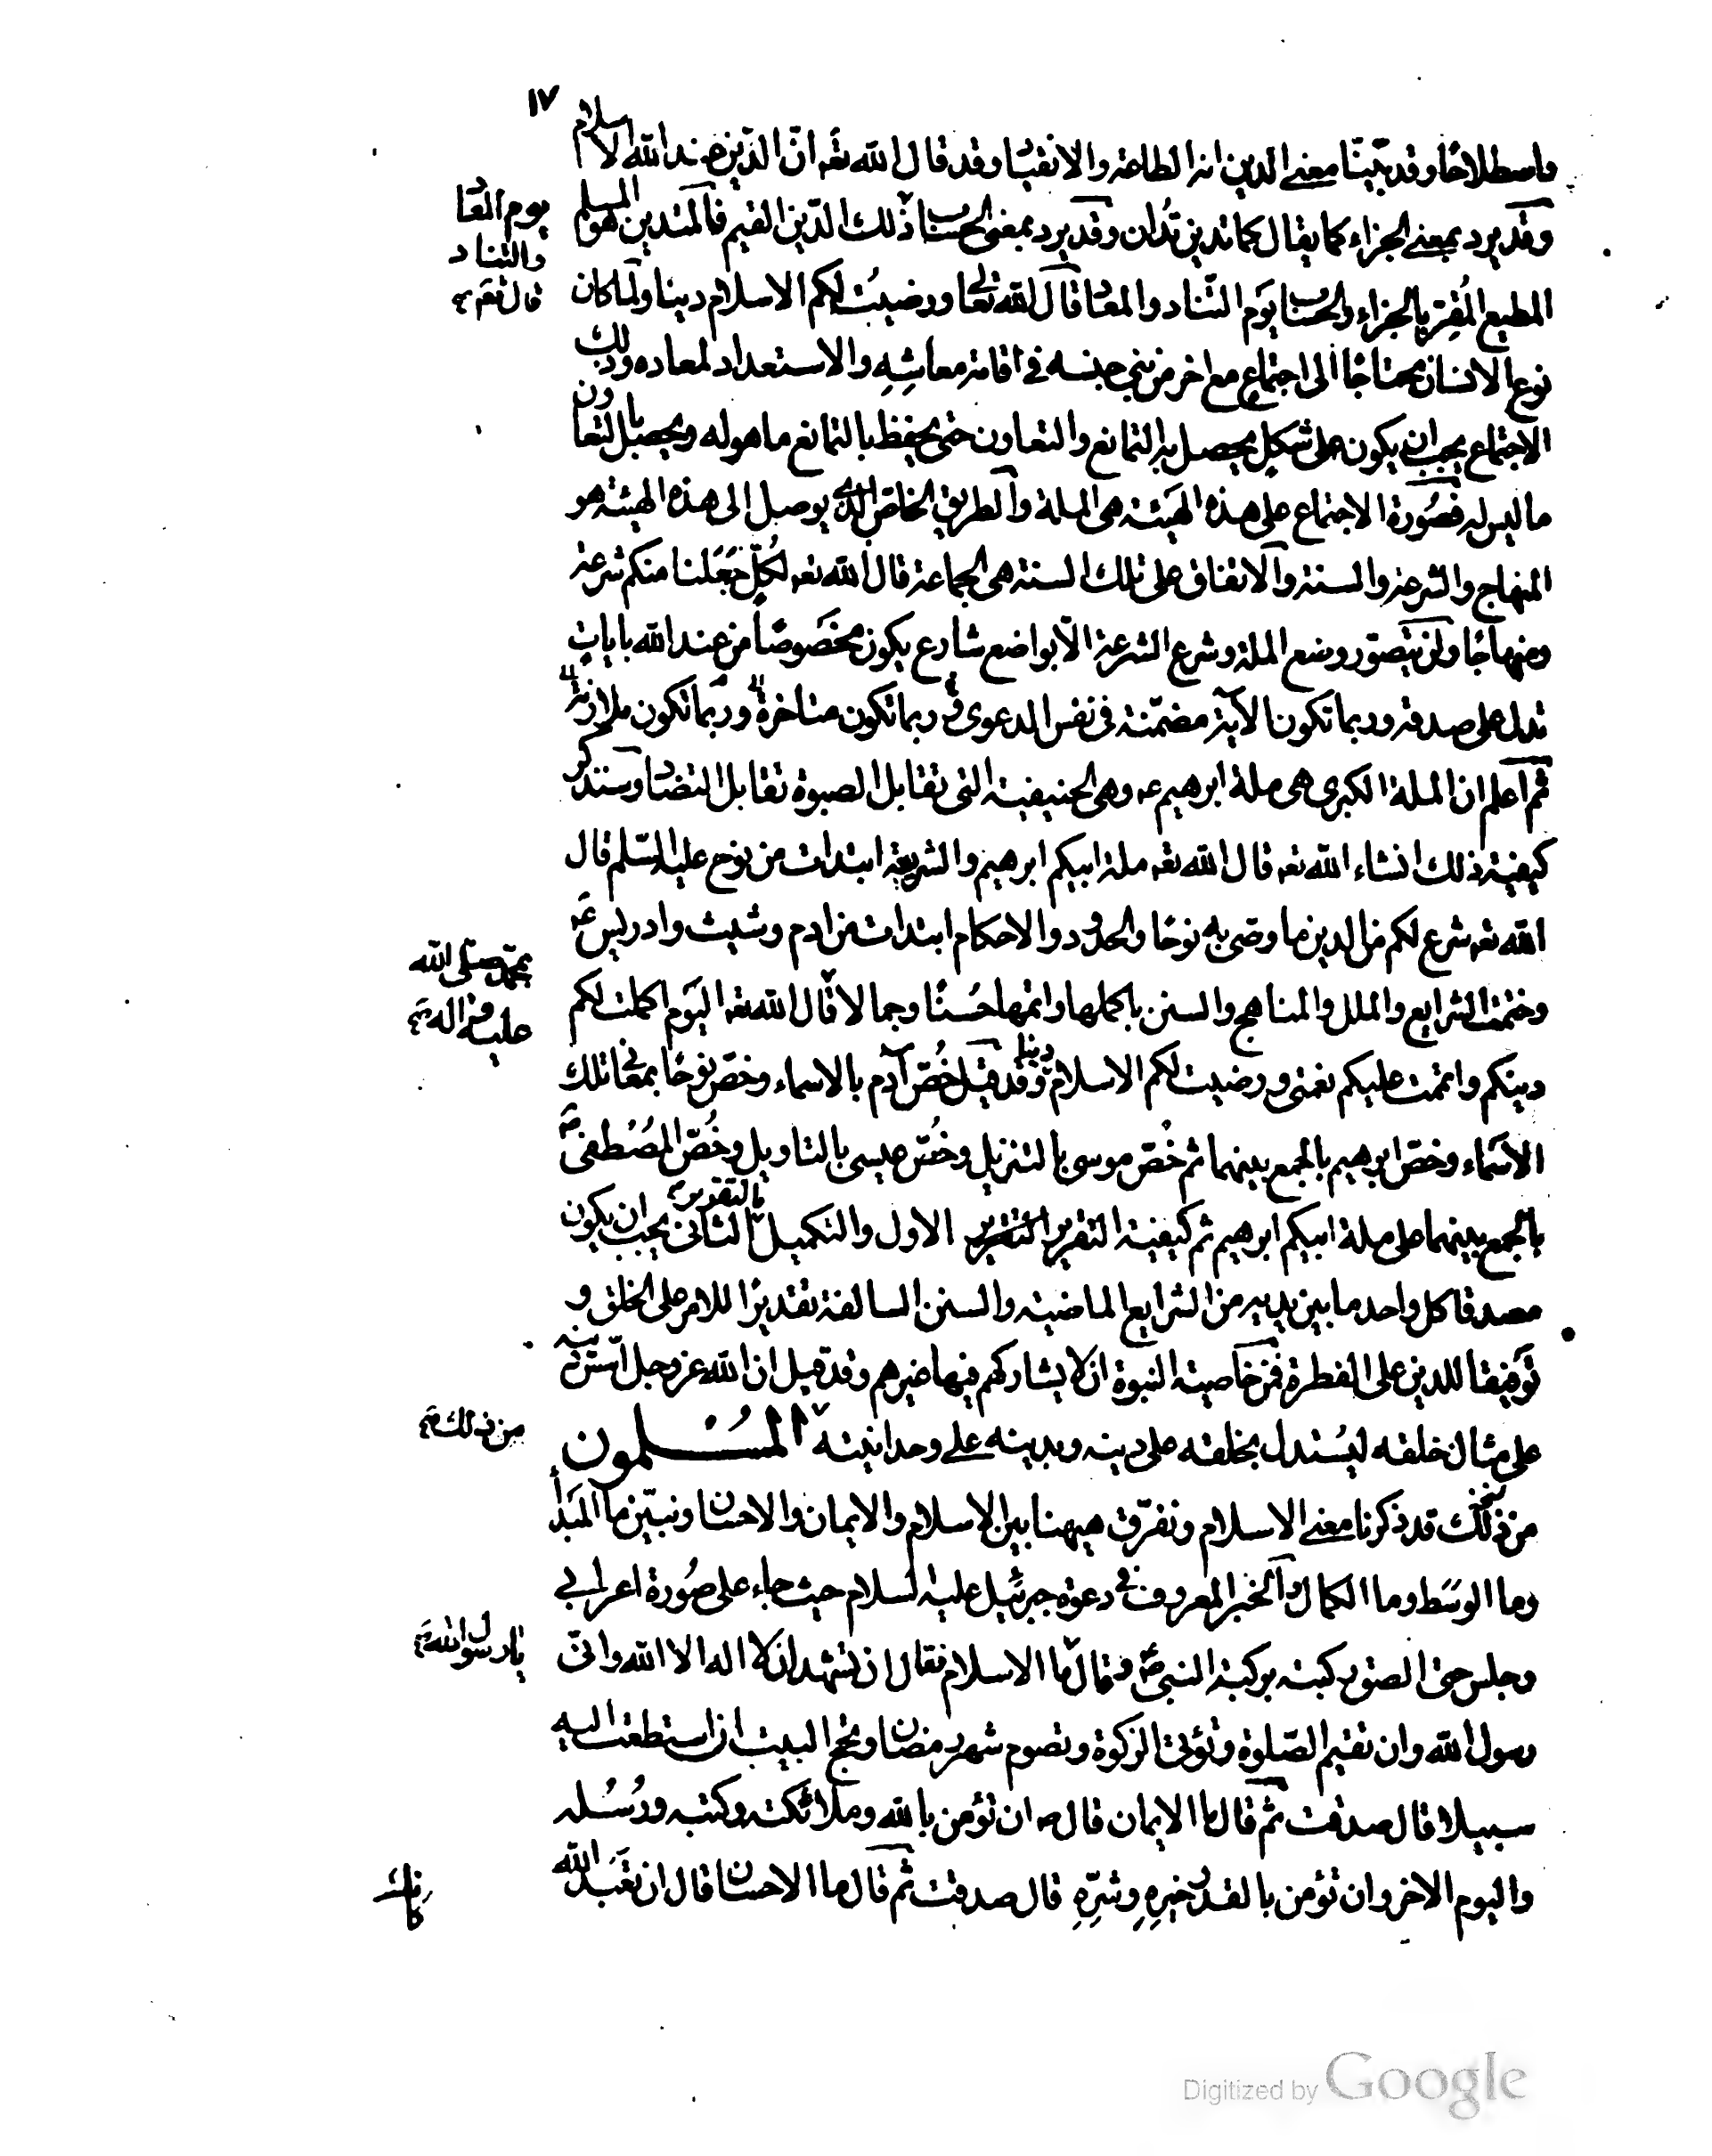 ١٧
واصطلاحًا وقد بيّنّا معنى الدين انه الطاعة والانقياد وقد قال الله تعه انّ الدّين عند الله الاسلام
وقد يرد بمعنى الجزاء كما يقال كما تدين تُدان وقد يرد بمعنى الحساب ذلك الدّين القيم فالمتدين هو المسلم
المطيع المُقِرّ بالجزاء والحساب يوم التّناد والمعاد قال الله تعالى ورضيتُ لكم الاسلام دينا ولما كان
يوم المعاد
والتناد
قال نعم
نوع الانسان محتاجًا الى اجتماع مع اخر من بنى جنسه فى اقامة معاشِهِ والاستعداد لمعاده وذلك
الاجتماع يجب ان يكون على شكلٍ يحصل به التمانع والتعاون حتى يحفظ بالتمانع ما هو له ويحصل بالتعاون
ما ليس له فصُورة الاجتماع على هذه الهَيئة هى الملة والطريق الخاصّ الذى يوصل الى هذه الهيئة هو
المنهاج والشرعة والسنة والاتفاق على تلك السنة هى الجماعة قال الله تعه لكُلٍّ جَعَلنا منكم شرعة
ومنهاجًا ولن يتصوّر وضع الملة وشرع الشرعة الّا بواضع شارع يكون مخصُوصًا من عند الله باياتٍ
تدل على صدقه وربما تكون الآية مضمّنة فى نفس الدعوى وربما تكون متاخرة وربّما تكون ملازمة
ثم اعلم ان الملة الكبرى هى ملة ابرهيم عه وهى الحنيفية التى تقابل الصبوة تقابل التضاد وسنذكر
كيفية ذلك انشاء الله تعه قال الله تعه ملة ابيكم ابرهيم والشريعة ابتدات من نوح عليه السّلم قال
الله تعه شرع لكم من الدين ما وصّى به نوحًا والحدُود والاحكام ابتدات من ادم وشيث وادريس عَه
وختمت الشرايع والملل والمناهج والسنن باكملها واتمها حُسنًا وجمالا قال الله تعه اليَوم اكملت لكم
بمحمّد صلى الله
عليه واله
دينكم واتممت عليكم نعمتى ورضيت لكم الاسلام دينا وقد قيل خُصّ آدم بالاسماء وخصّ نوحًا بمعانى تلك
الاسَماء وخصّ ابرهيم بالجمع بينهما ثم خُصّ موسى بالتنزيل وخُصّ عيسى بالتاويل وخُصّ المصُطفى صَ
بالجمع بينهما على ملة ابيكم ابرهيم ثم كيفية التقرير الاول والتكميل بالتقرير الثانى يجب ان يكون
مصدقا كل واحد ما بين يديه من الشرايع الماضية والسنن السالفة تقديرًا للامر على الخلق و
توفيقا للدين على الفطرة فمن خاصية النبوة ان لا يشاركهم فيها غيرهم وقد قيل ان الله عز وجل اسّس دينه
على مثال خلقه ليُستدل بخلقه على دينه وبدينه على وحدانيته المُسلمون
من ذلك
من ذلك نحن قد ذكرنا معنى الاسلام ونفرّق هيهنا بين الاسلام والايمان والاحسان ونبيّن ما المَبدأ
وما الوسَط وما الكمال والخبر المعروف فى دعوة جبرئيل عليه السلام حيث جاء على صُورة اعرابى
وجلس حتى الصق ركبته بركبة النبى صَ وقال ما الاسلام فقال ان تشهد ان لا اله الا الله وانّى
يا رسول الله
رسول الله وان تقيم الصّلوة وتؤتى الزكوة وتصوم شهر رمضان وتحج البيت ان استطعت اليه
سبيلا قال صدقت ثم قال ما الايمان قال ص ان تؤمن بالله وملائكته وكتبه ورُسُله
واليوم الاخر وان تؤمن بالقدر خيرِهِ وشرّهِ قال صدقت ثم قال ما الاحسان قال ان تعَبَد الله
كانك
Digitized by Google